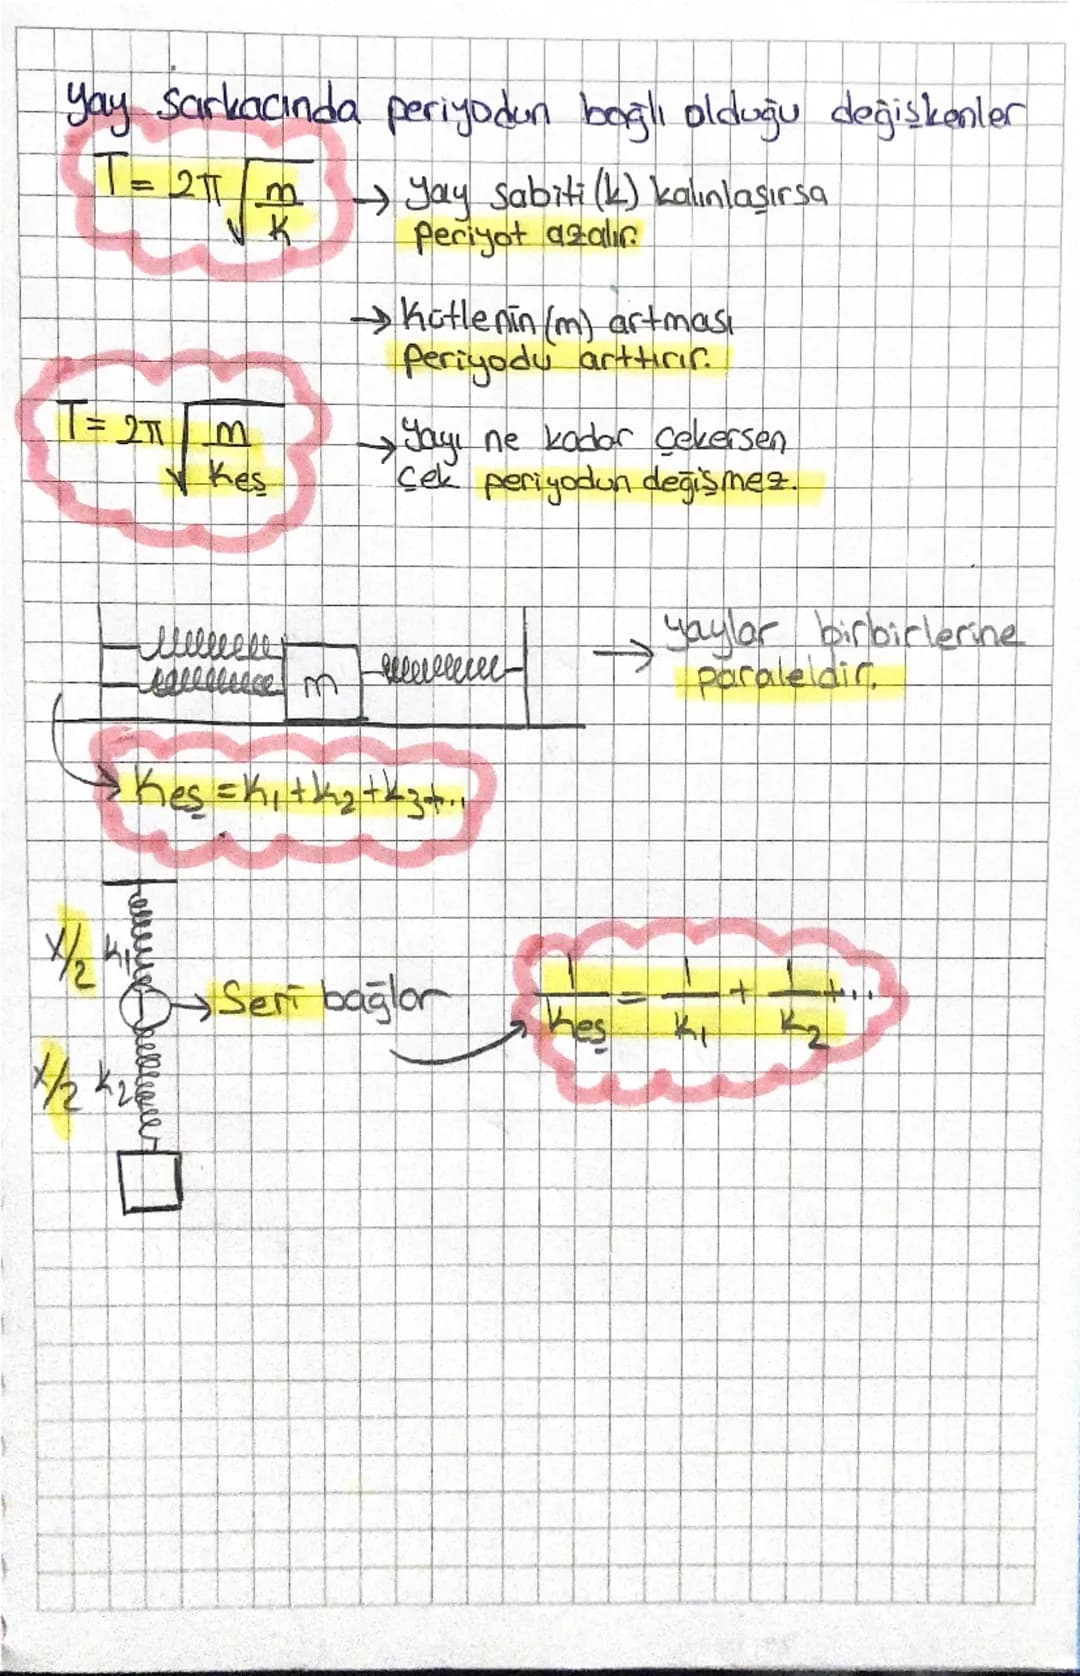 Yay sarkacında periyodun bağlı olduğu değişkenler
T = 2π √m/k
→ Yay sabiti (k) kalınlaşırsa
periyot azalır.
→ Kütlenin (m) artması
periyodu arttırır.
T = 2π √m/keş
→ Yayı ne kadar çekersen
çek periyodun değişmez.
m
→ yaylar birbirlerine
paraleldir.
keş = k₁ + k₂ + k₃ + ...
x/2 k₁
→ Seri bağlar
1/keş = 1/k₁ + 1/k₂ + ...
x/2 k₂